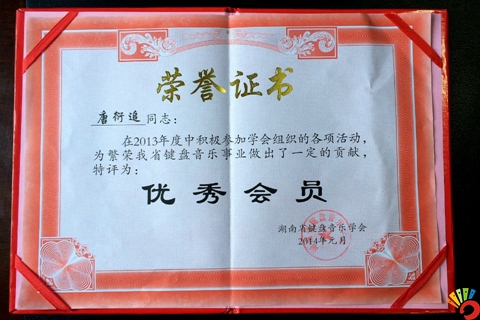 荣誉证书
唐衍追同志：
在2013年度中积极参加学会组织的各项活动，
为繁荣我省键盘音乐事业做出了一定的贡献，
特评为：
优秀会员
湖南省键盘音乐学会
2014年元月